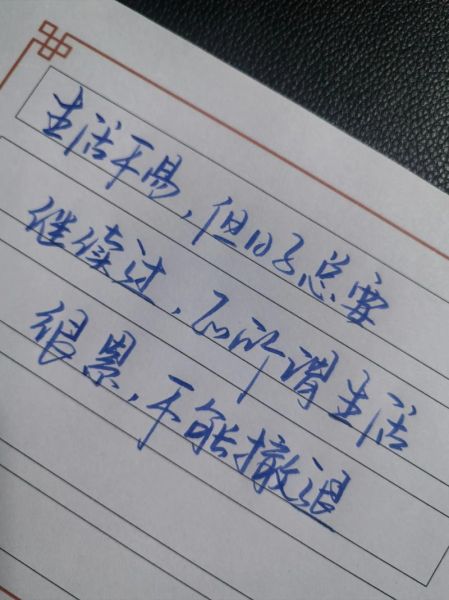 生活不易，但日子总要
继续过，正所谓生活
很累，不能撤退